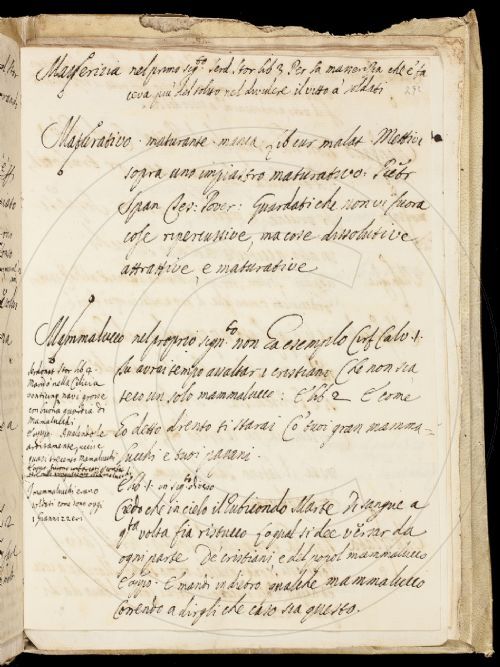 Masserizia nel primo sig.to Serd. Stor. lib. 3. Per la masserizia che e' fa
ceva più del solito nel dividere il vitto a soldati
292
Maturativo. maturante. manca lib. cur. malat. Mettivi
sopra uno impiastro maturativo. Pietr
Span. Ces. Pover. Guardati che non vi sieno
cose ripercussive, ma cose dissolutive
attrattive, e maturative
Mammalucco nel proprio sign.to non ha esemplo Ciriff. Calv. 1.
Tu avrai tempo a saltar i cristiani Che non sia
teco un solo mammalucco: E lib. 2. E come
Io detto drento ti starai Co' tuoi gran mamma-
lucchi e tuoi pagani.
E lib. 1. in sig.to diverso
Credo che in cielo il rubicondo Marte Di sangue a
q.ta volta fia ristucco Lo qual si dee versar da
ogni parte De' cristiani, e del popol mammalucco
E mandi indietro qualche mammalucco
Correndo a dirgli che caso sia questo.
Serdonat. Stor. lib. 4.
Mandò nella Cilicia
venticinq. navi grosse
con buona guardia di
Mamalucchi.
quasi trecento Mamalucchi
I mammalucchi erano
soldati come sono oggi
i Giannizzeri